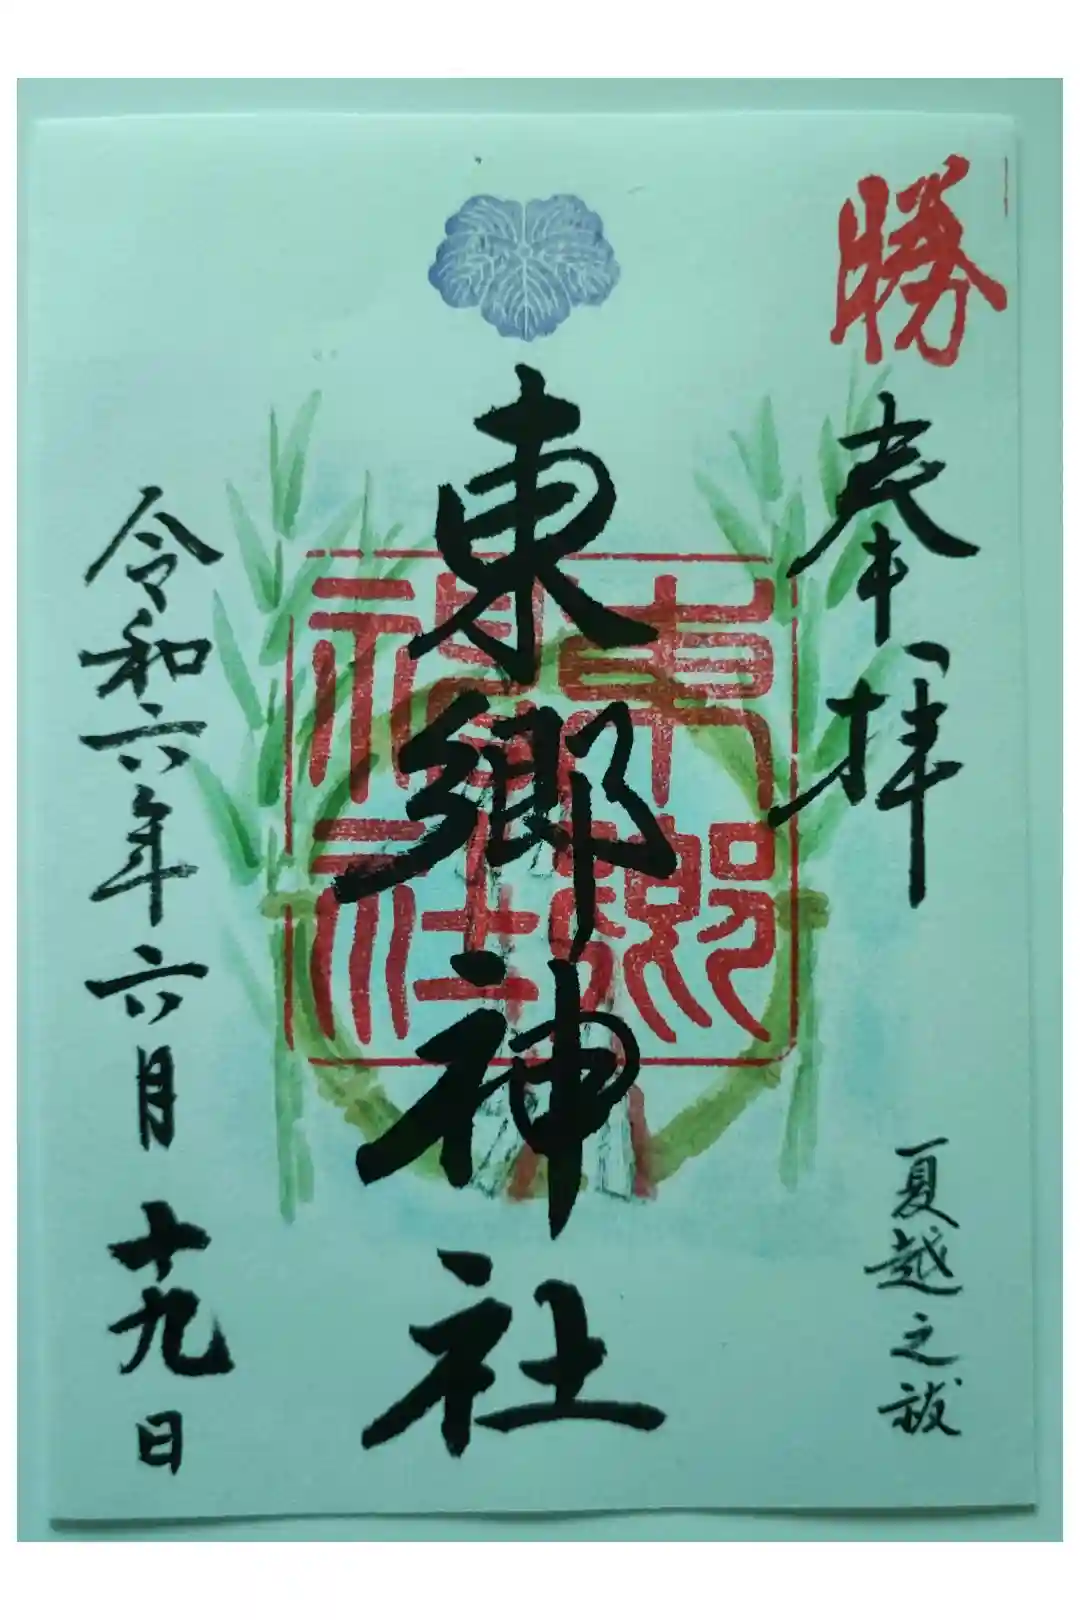 勝
奉拝
夏越之祓
東郷神社
東郷神社
令和六年六月十九日